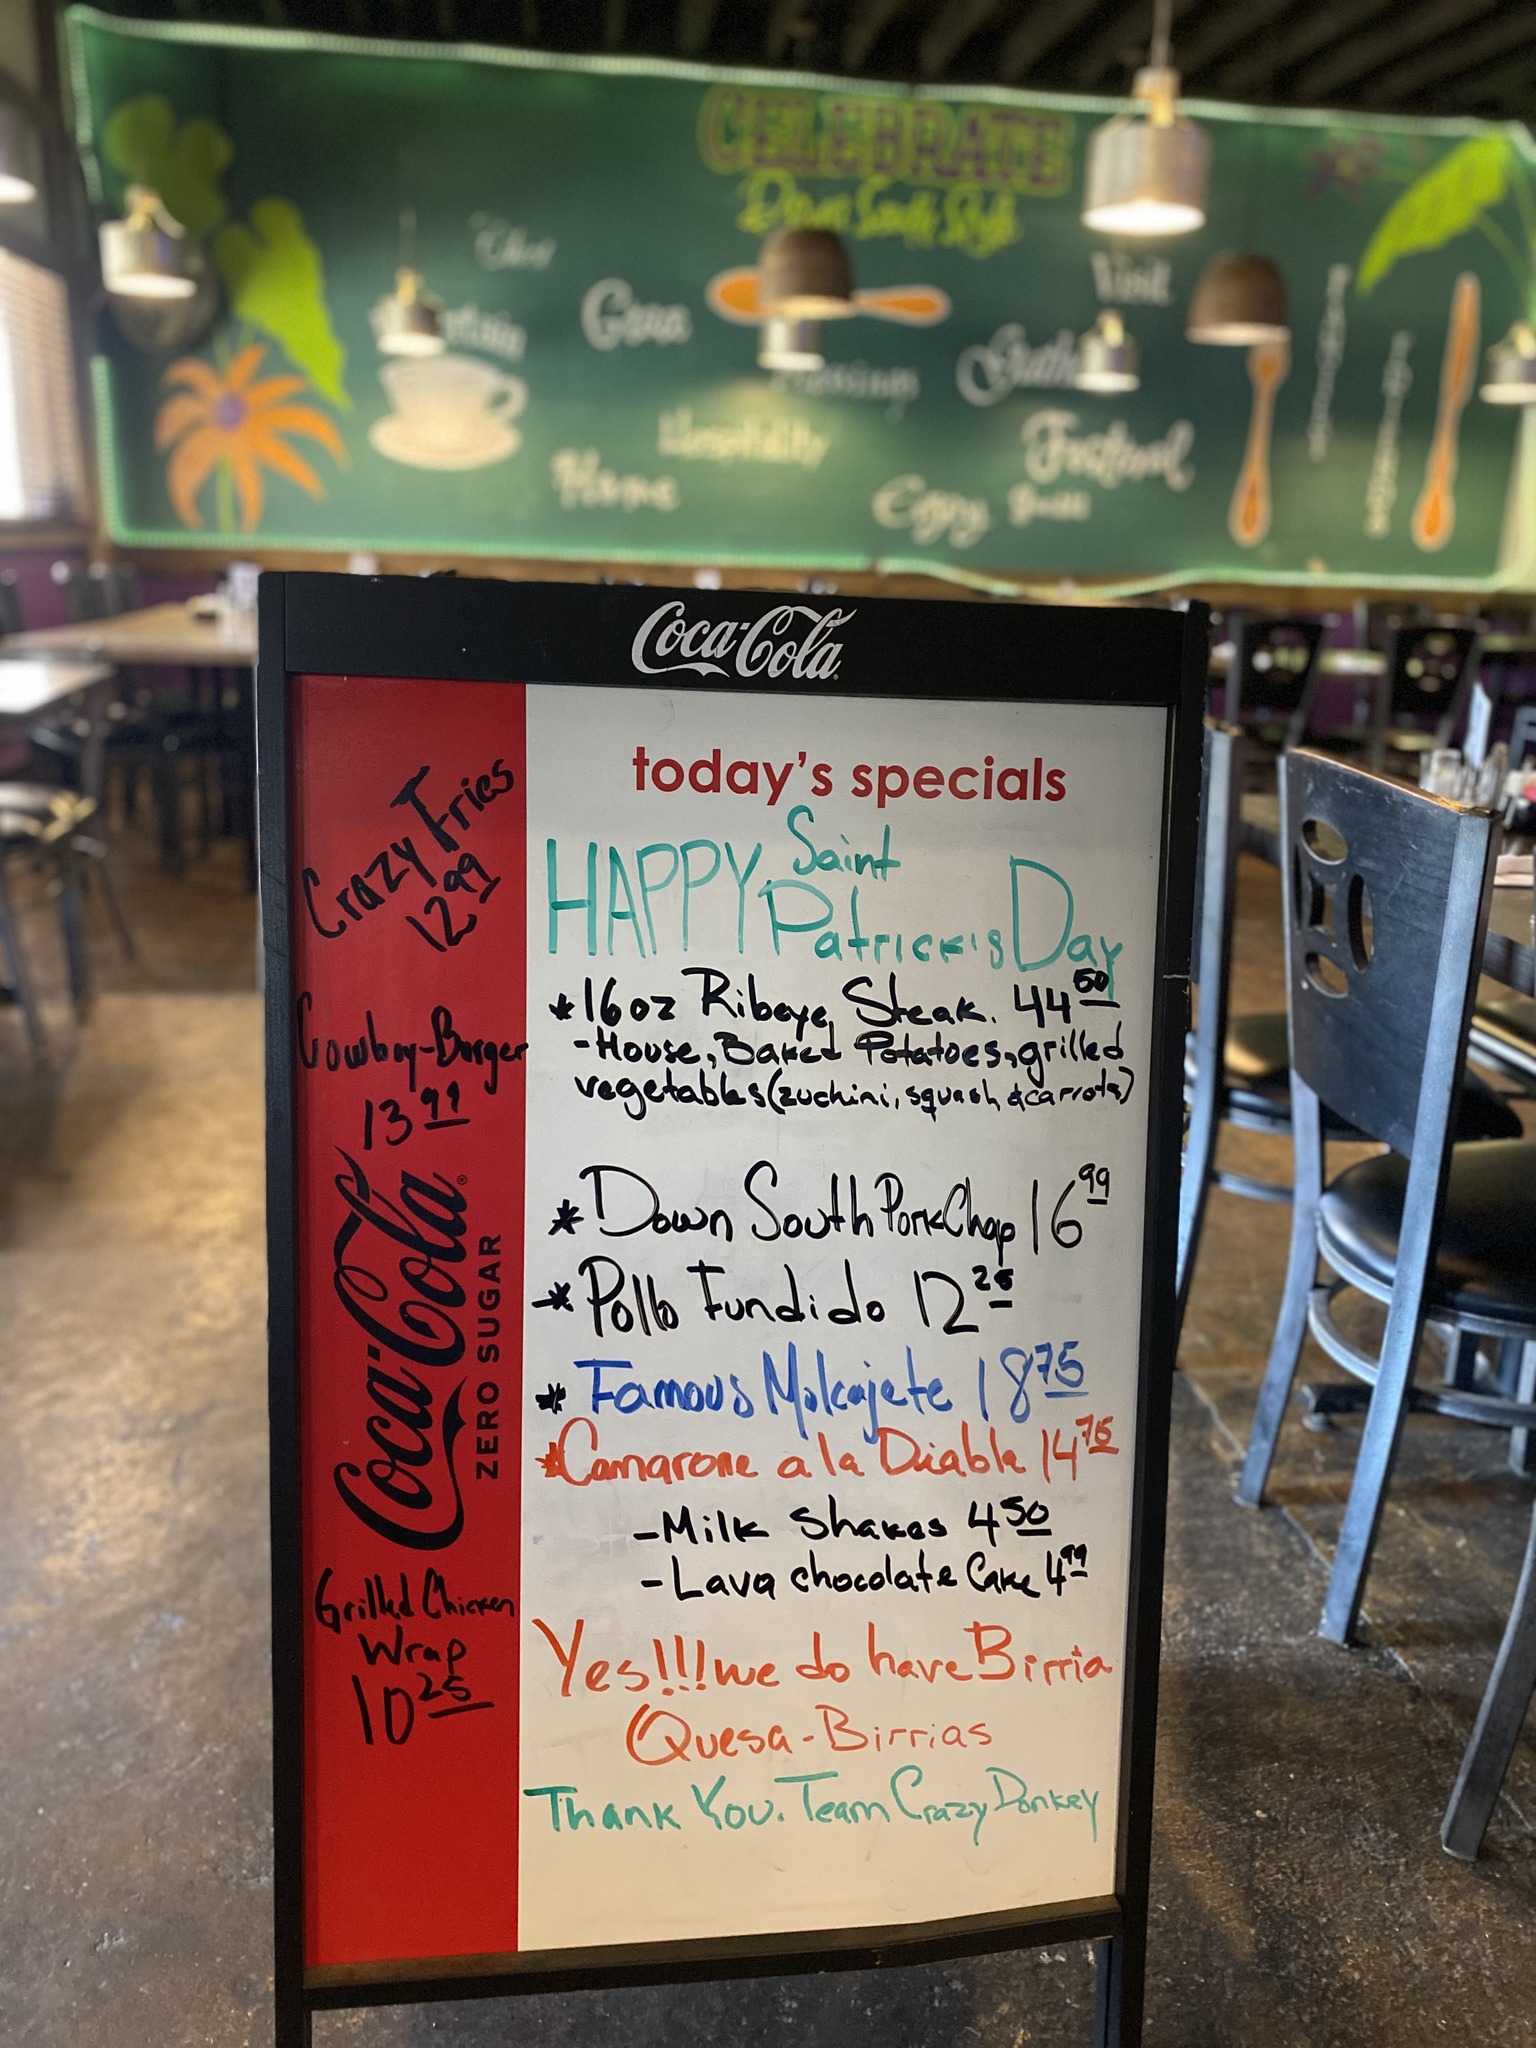 CELEBRATE
Down South Style
Visit
Home
Hospitality
Festival
Enjoy
Coca-Cola
today's specials
HAPPY Saint
Patrick's Day
*16oz Ribeye Steak. 44 50
-House, Baked Potatoes, grilled
vegetables (zuchini, squash & carrots)
* Down South Pork Chop 16 99
* Pollo Fundido 12 25
* Famous Molcajete 18 75
*Camarone a la Diabla 14 75
-Milk Shakes 4 50
-Lava chocolate Cake 4 99
Yes!!! we do have Birria
Quesa-Birrias
Thank You. Team Crazy Donkey
Crazy Fries
12 99
Cowboy-Burger
13 99
Coca-Cola
ZERO SUGAR
Grilled Chicken
Wrap
10 25